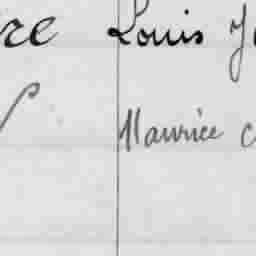 re Louis J
Maurice c